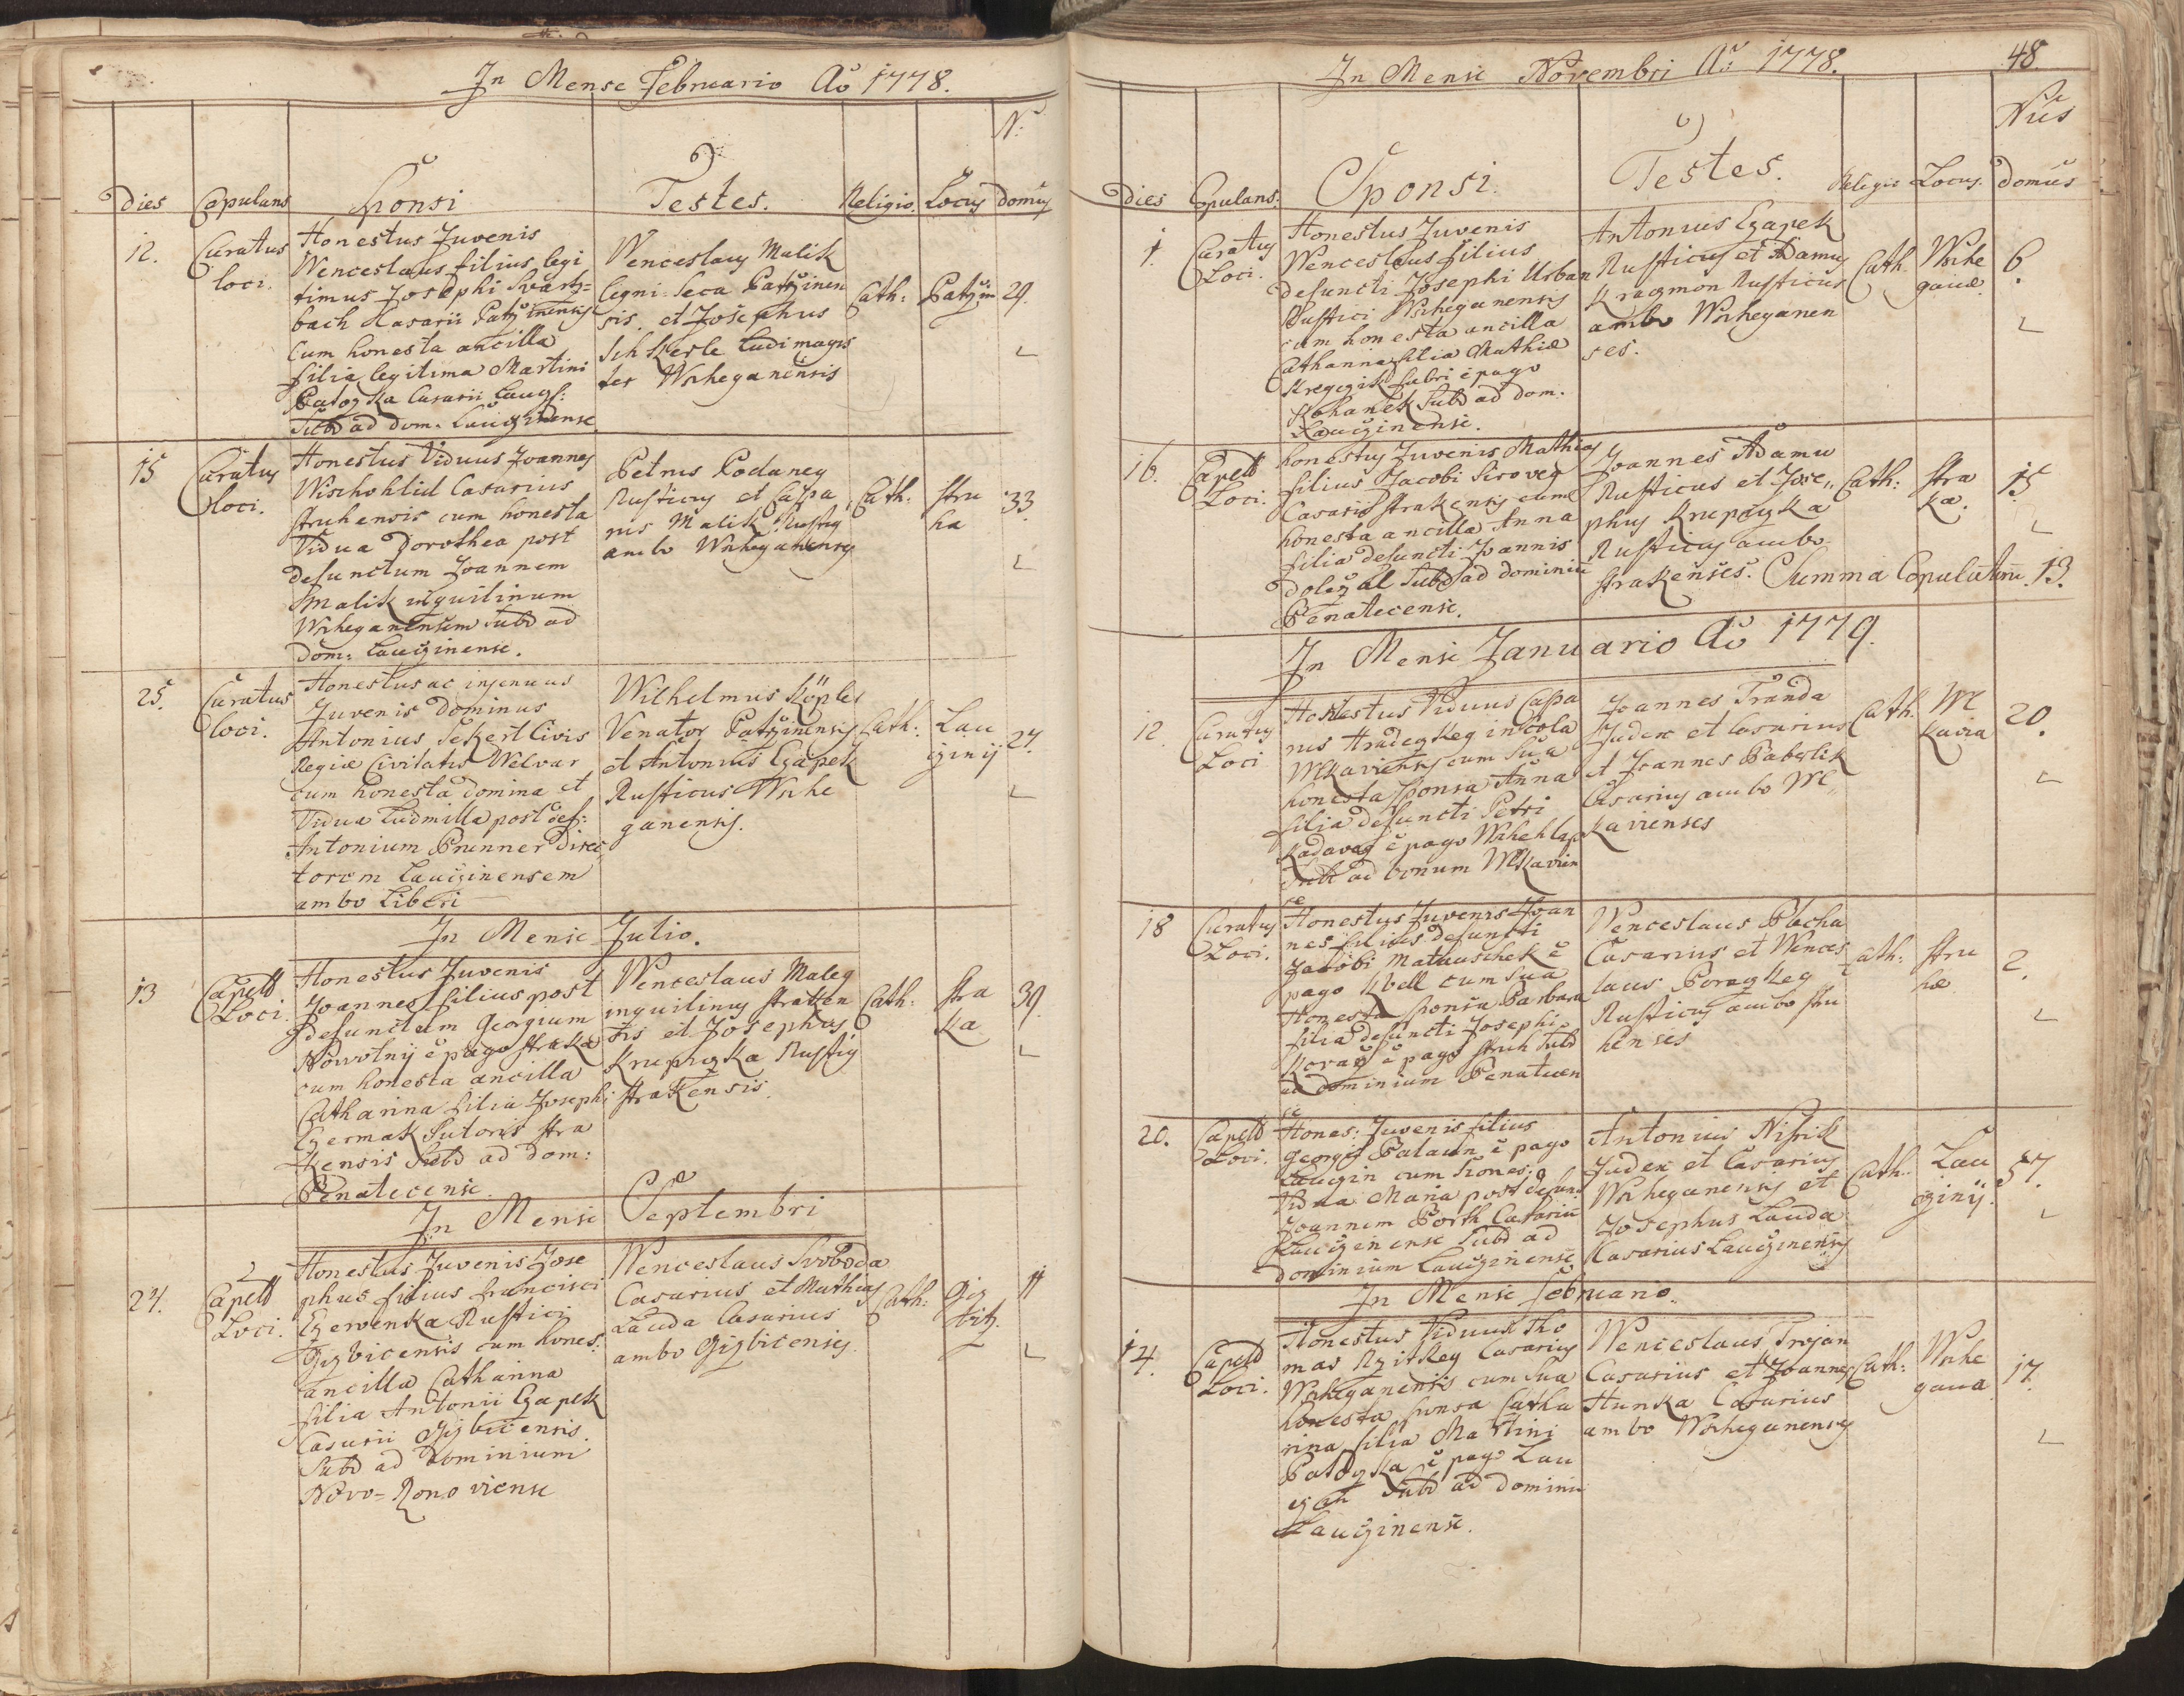 In Mense Februario Ao 1778.
N:
Dies Copulans Sponsi Testes. Religio. Locus domus
12. Curatus loci.
Honestus Juvenis
Wenceslaus filius legi
timus Josephi Svartz=
bach Casarii
cum honesta ancilla
filia legitima Martini
Casarii
Subd ad dom:
Wenceslaus Malik
et Josephus
ludimagis
ter Wrheganensis
Cath: 29.
15 Curatus loci.
Honestus Viduus Joannes
Casarius
struhensis cum honesta
Vidua Dorothea post
defunctum Joannem
Smalik inquilinum
Wrheganensem Subd ad
dom: Lauczinense.
Petrus Podaney
Rusticus et Caspa
rus Malik Rusticus
ambo Wrheganenses
Cath: stru
ha
33
25. Curatus loci.
Honestus ac injenuus
Juvenis Dominus
Antonius Sekert Civis
Regiæ Civitatis Welvar
cum honesta domina et
Vidua Ludmilla post def:
Antonium Prunner direc
torem Lauczinensem
ambo Liberi
Wilhelmus
Venator
et Antonius Czapek
Rusticus Wrhe
ganensis.
Cath: Lau
czinij
27.
In Mense Julio.
13 Capell Loci.
Honestus Juvenis
Joannes filius post
defunctum Georgium
Nowotnij è pago straka
cum honesta ancilla
Catharina filia Josephi
Czermak Sutoris stra
kensis Subd ad dom:
Benatecense.
Wenceslaus Maleg
inquilinus straken
sis et Josephus
Krupiczka Rusticus
strakensis.
Cath: stra
ka
39.
In Mense Septembri
27. Capell Loci.
Honestus Juvenis Jose
phus filius francisci
Czerwenka Rustici
Gizbicensis cum hones:
ancilla Catharina
filia Antonii Czapek
Casarii Gizbicensis.
Subd ad dominium
Novo=Ronoviense
Wenceslaus Svoboda
Casarius et Mathias
Lauda Casarius
ambo Gizbicenses.
Cath: Giz
bitz.
11
In Mense Novembri Ao: 1778.
48.
Nus
Dies Copulans. Sponsi. Testes. Religio Locus. domus
1. Curatus Loci.
Honestus Juvenis
Wenceslaus filius
defuncti Josephi Urban
Rustici Wrheganensis
cum honesta ancilla
Catharina filia Mathiæ
fabri è pago
Subd ad dom.
Lauczinense.
Antonius Czapek
Rusticus et Adamus
Rusticus
ambo Wrheganen
ses.
Cath. Wrhe
gauæ.
6.
16. Capell Loci.
honestus Juvenis Mathias
filius Jacobi Siroveg
Casarii strakensis cum
honesta ancilla Anna
filia defuncti Joannis
Dolezal Subd ad dominiu
Benatecense.
Joannes Adamu
Rusticus et Jose,,
phus Krupiczka
Rusticus ambo
strakenses.
Cath: stra
ka.
15
Summa Copulatoru. 13.
In Mense Januario Ao 1779.
12 Curatus Loci
Honestus Viduus Caspa
rus Hradezkeg incola
Wlkaviensis cum sua
honesta sponsa Anna
filia defuncti Petri
è pago
Subd ad bonum Wlkavien
se
Joannes Franda
Judex et Casarius
et Joannes
Casarius ambo Wl,,
kavienses
Cath. Wl
kavia
20.
18 Curatus Loci.
Honestus Juvenis Joan
nes filius defuncti
Jacobi Matauschek è
pago Kbell cum sua
Honesta sponsa Barbara
filia defuncti Josephi
è pago Struh Subd
ad dominium Benatecen
se
Wenceslaus Plicha
Casarius et Wences
laus
Rusticus ambo stru
henses
Cath: stru
hæ
2.
20. Capell Loci.
Hones: Juvenis filius
Georgii è pago
Lauczin cum hones:
Vidua Maria post defunc
Joannem Casariu
Lauczinense Subd ad
dominium Lauczinense
Antonius
Judex et Casarius
Wrheganensis et
Josephus Lauda
Casarius Lauczinensis
Cath. Lau
czinij.
57.
In Mense februario.
14. Capell Loci.
Honestus Viduus Tho
mas Casarius
Wrheganensis cum sua
honesta sponsa Catha
rina filia Martini
è pago Lau
Subd ad dominiu
Lauczinense.
Wenceslaus Trojan
Casarius et Joannes
Hunka Casarius
ambo Wrheganenses
Cath: Wrhe
gaua
17.